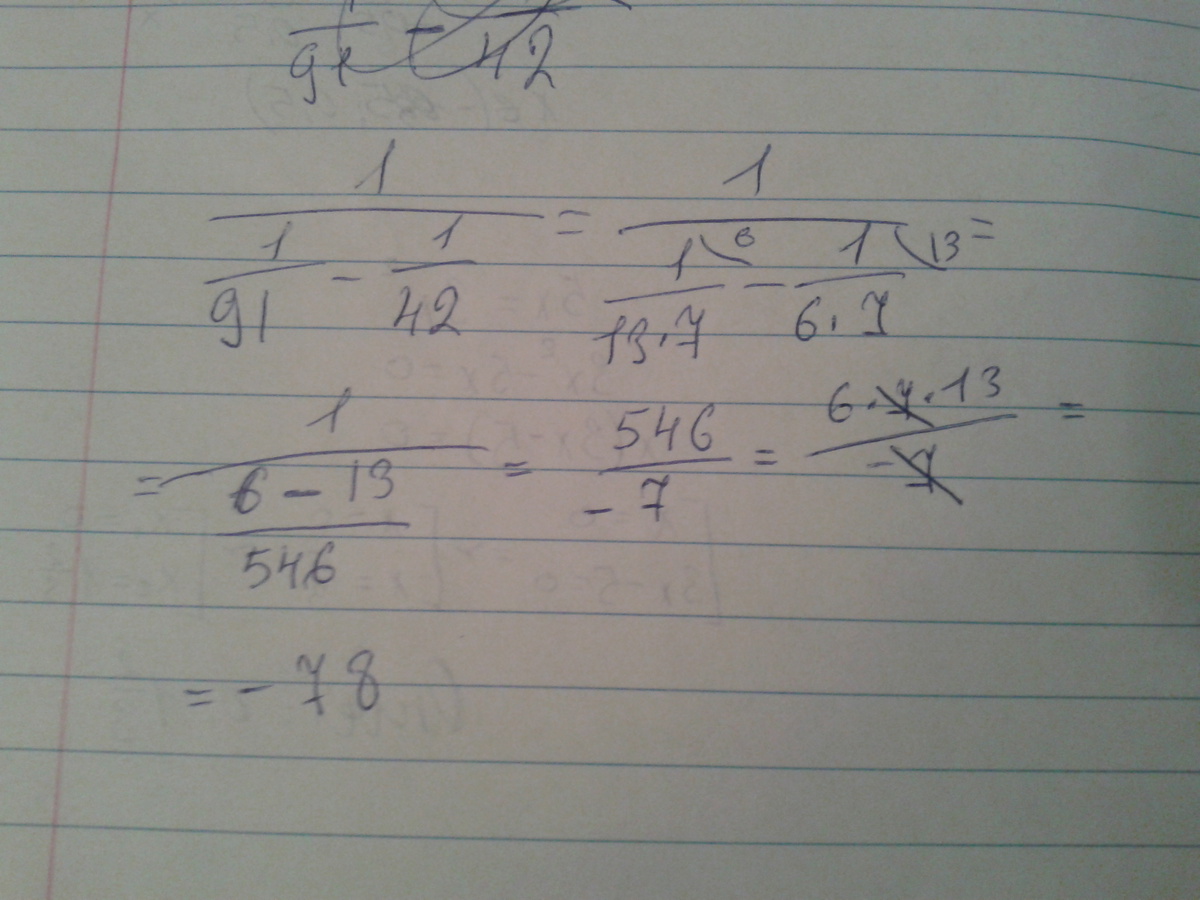 91 - 42
1 / (1/91 - 1/42) = 1 / (1\6/13·7 - 1\13/6·7) =
= 1 / ((6 - 13)/546) = 546/-7 = 6·7·13/-7 =
= - 78